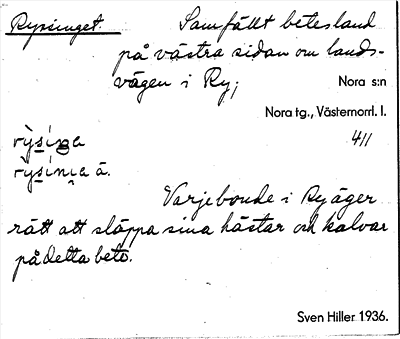 Rysinget. Samfällt betesland
på västra sidan om lands-
vägen i Ry;
Nora s:n
Nora tg., Västernorrl. l.
411
Varje bonde i Ry äger
rätt att släppa sina hästar och kalvar
på detta bete.
Sven Hiller 1936.